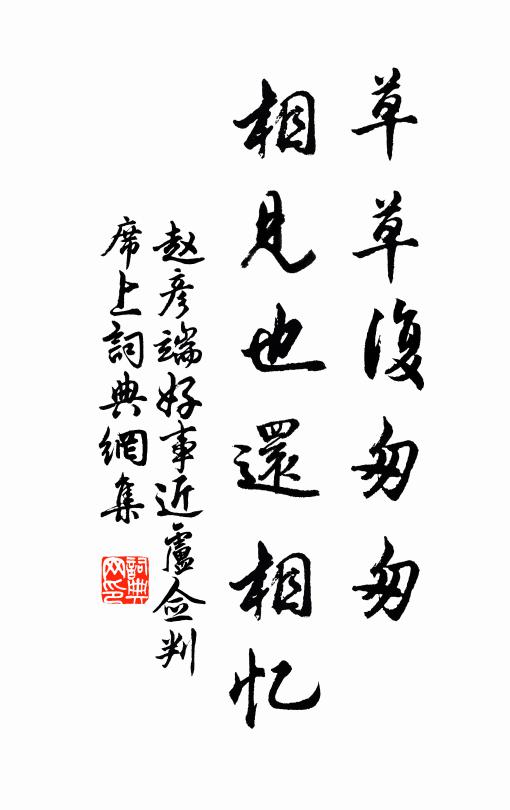 草草復匆匆
相見也還相忆
赵彦端好事近盧佥判
席上詞典網集
詞典网印